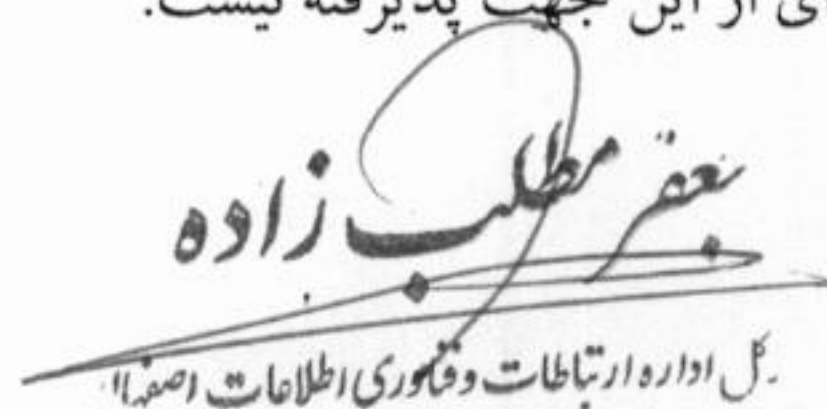 ی از این جهت پذیرفته نیست.
جعفر مطلب زاده
کل اداره ارتباطات و فناوری اطلاعات اصفها